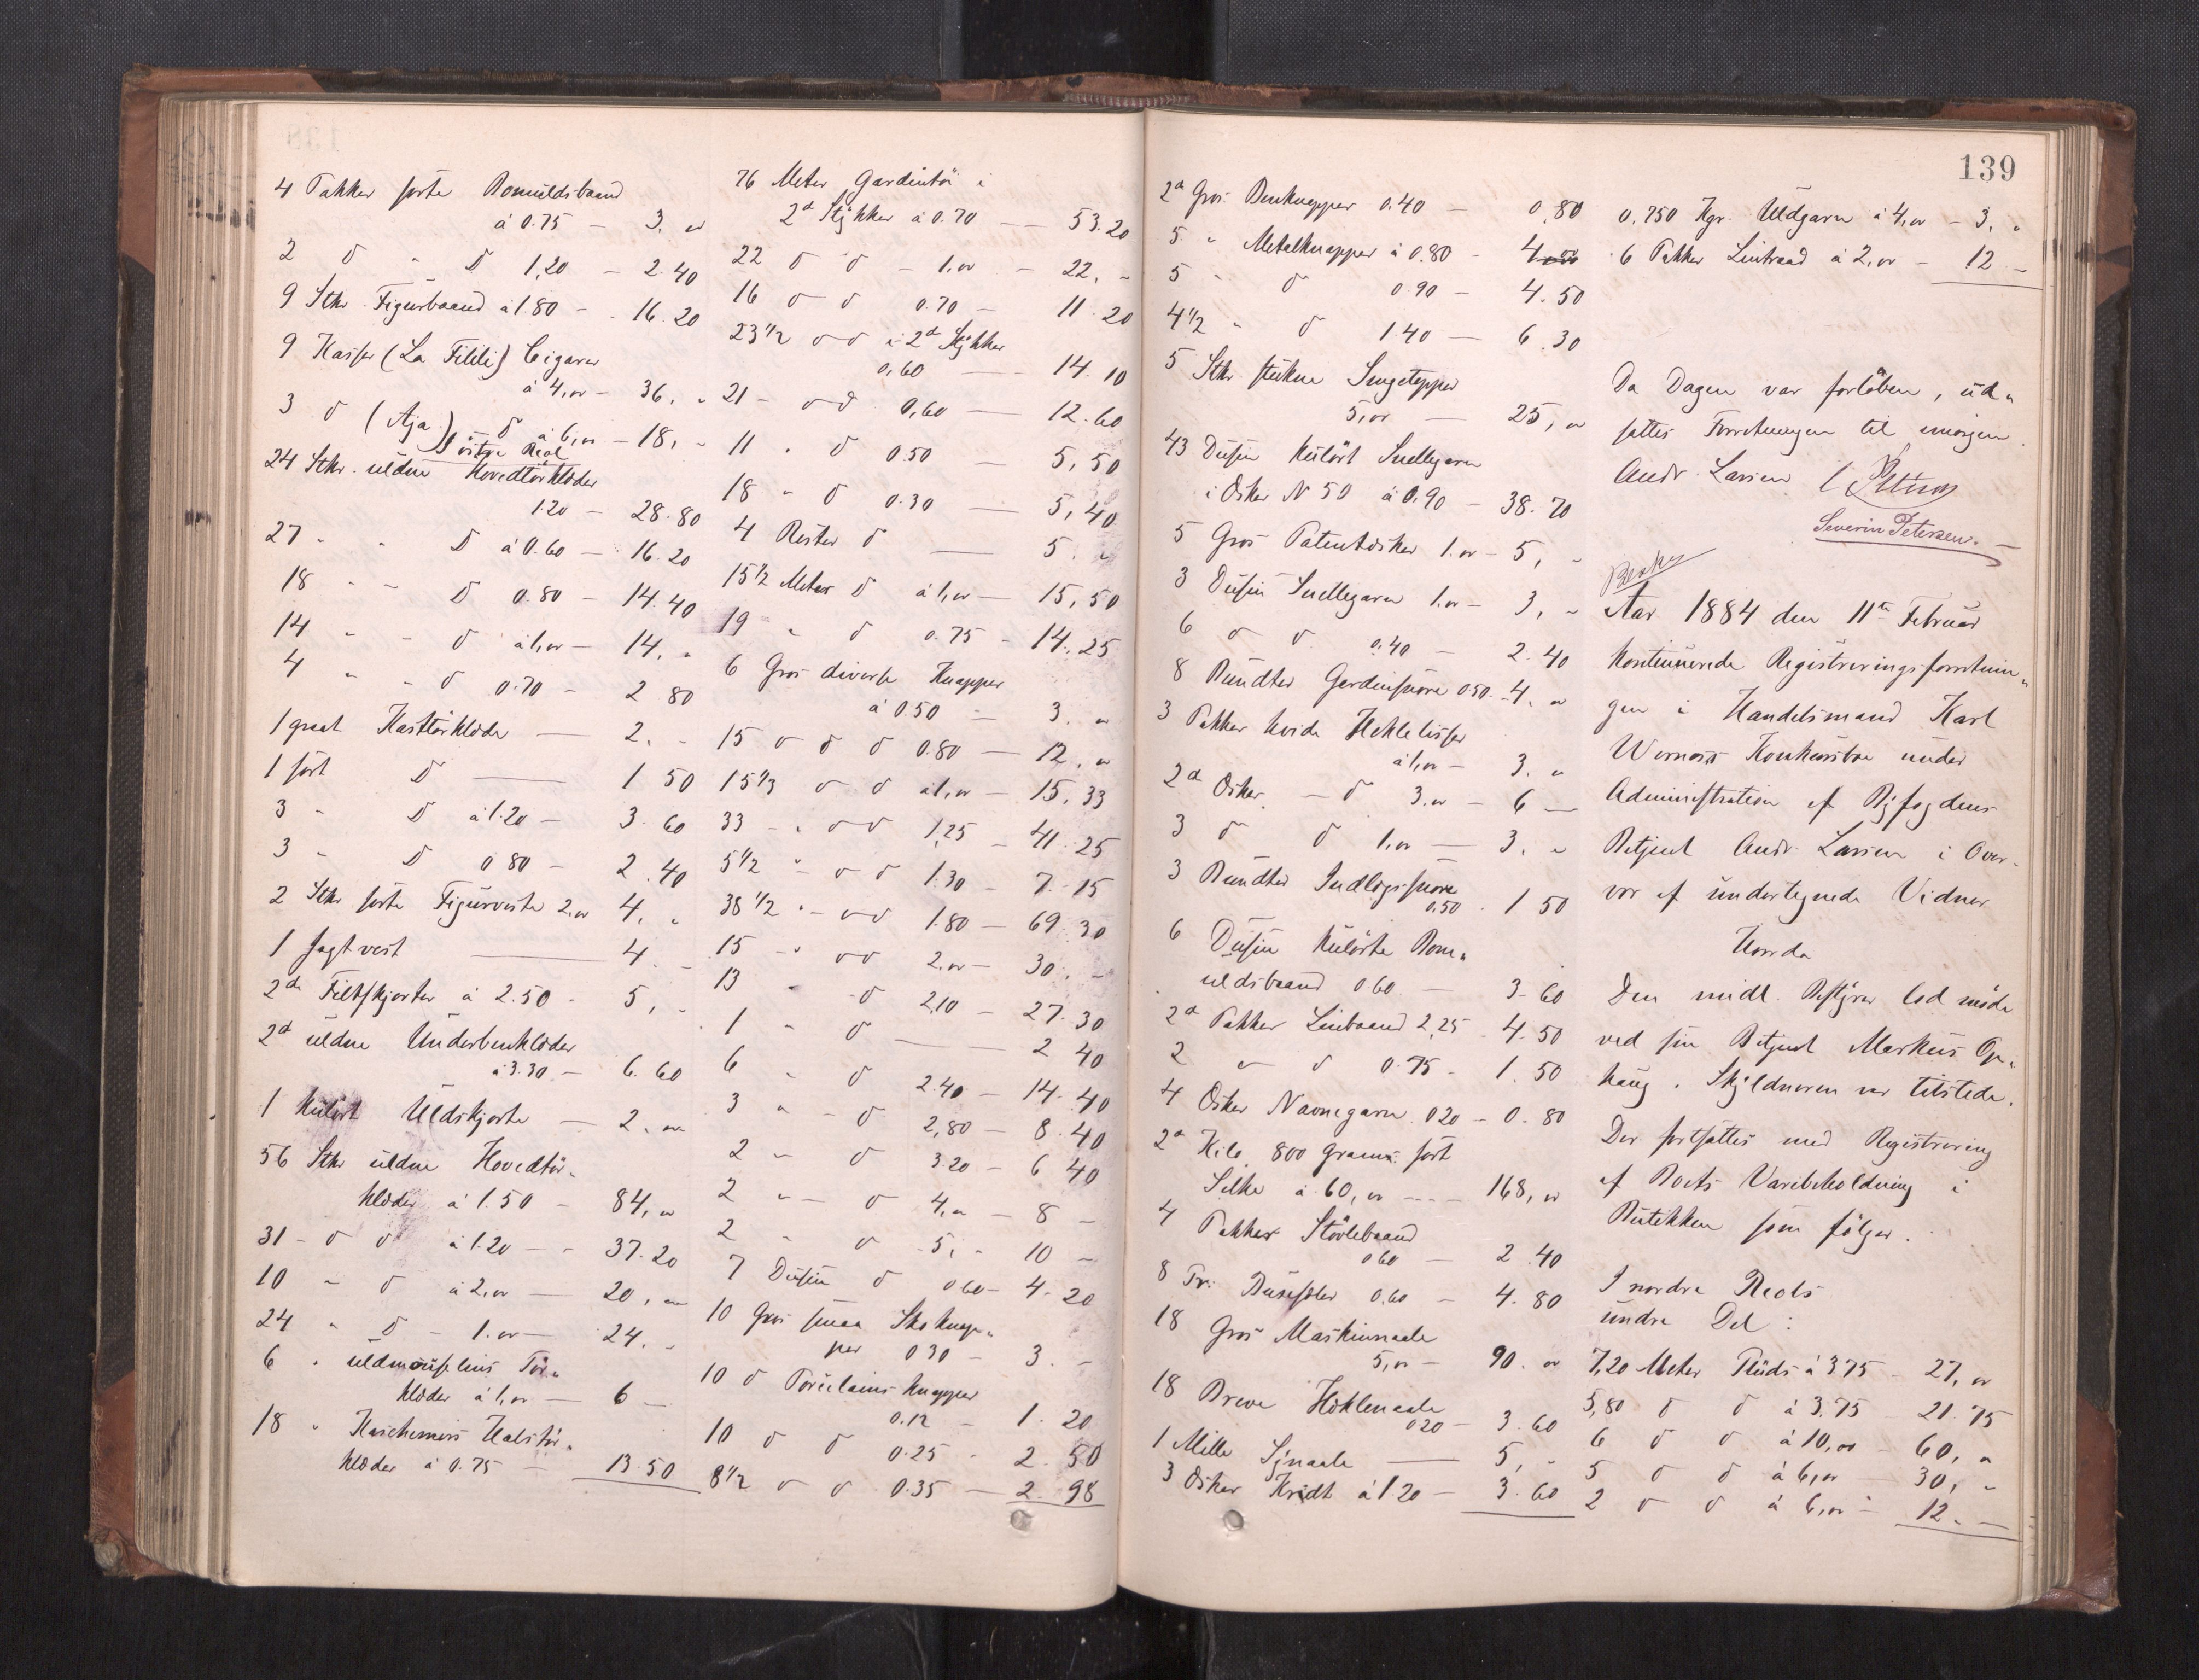 4 Pakker sorte Bomuldsbaand
à 0.75 - 3, "
2 d " D 1,20 - 2.40
9 Stkr Figurbaand à 1.80 - 16.20
9 Kasser (La Filili) Cigarer
à 4,00 - 36, "
3 d (Aja) - d à 6,00 - 18, -
I östre Reol
24 Stkr. uldne Hovedtörklæder
1.20 - 28.80
27 " " D à 0.60 - 16.20
18 " - D 0.80 - 14.40
14 " - d à 1,00 - 14, "
4 " - d 0.70 - 2 80
1 graat Kastetörklæde - 2. -
1 sort D - 1 50
3 " D à 1.20 - 3.60
3 " D 0 80 - 2.40
2 Stkr sorte Figurveste 2,00 4, "
1 Jagtvest - 4 -
2de Filtskjorter à 2.50 - 5, -
2d uldne Underbenklæder
à 3.30 - 6.60
1 kulört Uldskjorte - 2. "
56 Stkr uldne Hovedtör-
klæder à 1.50 - 84, "
31 - d d à 1.20 - 37.20
10 " d à 2,00 - 20, "
24 " D - 1.00 - 24. -
6 " uldmouselins Tör-
klæder à 1,00 - 6 -
18 " Kaschemirs Halstör-
klæder à 0.75 - 13.50
76 Meter Gardintöi i
2d Stykker à 0.70 - 53.20
22 d d - 1,00 - 22, -
16 d d 0.70 - 11.20
23 1/2 d d i 2d Stykker
0,60 - 14.10
21 - d d 0,60 - 12.60
11 " d 0.50 - 5,50
18 " d 0.30 - 5,40
4 Rester d - 5. "
15 1/2 Meter d à 1,00 - 15,50
19 " d 0.75 - 14.25
6 Gros diverse Knapper
à 0.50 - 3. "
15 d d d 0.80 - 12, "
15 1/3 d d à 1,00 - 15,33
33 - " d d 1,25 - 41.25
5 1/2 " d d 1.30 - 7.15
38 1/2 " - d d 1.80 - 69.30
15 - " d d 2,00 - 30, -
13 " d 2,10 - 27.30
1 " d - 2 40
6 " d 2.40 - 14.40
3 " - d 2,80 - 8.40
2 " d 3.20 - 6 40
2 " - d 4, " - 8 -
2 " d 5, " 10 -
7 Dusin d 0 60 - 4.20
10 Gros smaa Skoknap-
per 0 30 - 3. -
10 d Porcelains knapper
0.12 - 1.20
10 d d 0.25 - 2.50
8 1/2 d d 0.35 - 2.98
139
2d Gros Benknapper 0.40 - 0.80
5 " Metalknapper à 0.80 - 4.00
5 " d 0.90 - 4.50
4 1/2 " d 1.40 - 6.30
5 Stkr stukne Sengetepper
5,00 - 25, "
43 Dusin kulört Snellegarn
i Æsker N 50 à 0.90 - 38.70
5 Gros Patentæsker 1.00 - 5, -
3 Dusin Snellegarn 1.00 - 3, -
6 d d 0.40 - 2.40
8 Bundter Gardinsnore 0 50 - 4, "
3 Pakker hvide Heklelisser
à 1,00 - 3. "
2d Æsker - d 3.00 - 6 -
3 d d 1.00 - 3, "
3 Bundter Indlægssnore
0,50 - 1 50
6 Dusin kulörte Bom-
uldsbaand 0 60 - 3.60
2d Pakker Linbaand 2,25 - 4.50
2 " d 0.75 - 1.50
4 Æsker Navnegarn 0 20 - 0.80
2d Kilo 800 Grams sort
Silke à 60, " - 168, "
4 Pakker Stövlebaand
0 60 - 2.40
8 Pr. 0.60 - 4.80
18 Gros Maskinnaale
5,00 - 90. "
18 Breve Heklenaale
0 20 - 3.60
1 Mille Synaale - 5, -
3 Æsker Kridt à 1 20 - 3.60
0,750 Kgr. Uldgarn à 4,00 - 3, "
6 Pakker Lintraad à 2,00 - 12 -
Da Dagen var forlöben, ud-
sattes Forretningen til imorgen.
Andr. Larsen
Severin Petersen.
Aar 1884 den 11te Februar
kontinuerede Registreringsforretnin-
gen i Handelsmand Karl
Wernoss Konkursbo under
Administration af Byfogdens
Betjent Andr. Larsen i Over-
vær af undertegnede Vidner
Hvorda
Den midl. Bestyrer lod möde
ved sin Betjent Markus Op-
haug. Skyldneren var tilstede.
Der fortsattes med Registrering
af Boets Varebeholdning i
Butikken som fölger.
I nordre Reols
undre Del:
7,20 Meter Pluds à 3 75 - 27, "
5,80 d d à 3.75 - 21.75
6 d d à 10,00 - 60, "
5 d d à 6,00 - 30, -
2 d d à 6,00 - 12. -